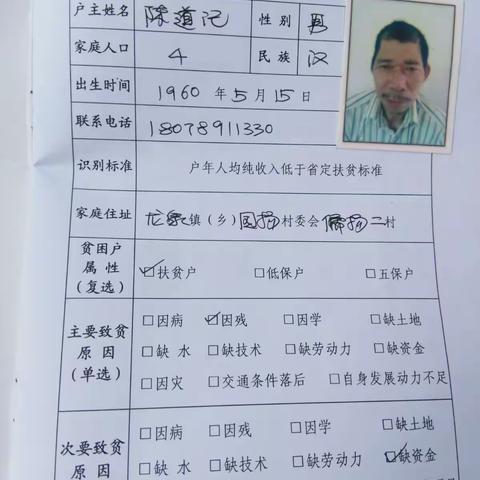 户主姓名 陈道记 性别 男
家庭人口 4 民族 汉
出生时间 1960 年 5 月 15 日
联系电话 18078911330
识别标准 户年人均纯收入低于省定扶贫标准
家庭住址 龙泉 镇(乡) 国扬 村委会 二 村
贫困户
属性
(复选)
☑扶贫户 □低保户 □五保户
主要致贫
原因
(单选)
□因病 ☑因残 □因学 □缺土地
□缺水 □缺技术 □缺劳动力 □缺资金
□因灾 □交通条件落后 □自身发展动力不足
次要致贫
原因
□因病 □因残 □因学 □缺土地
□缺水 □缺技术 □缺劳动力 ☑缺资金